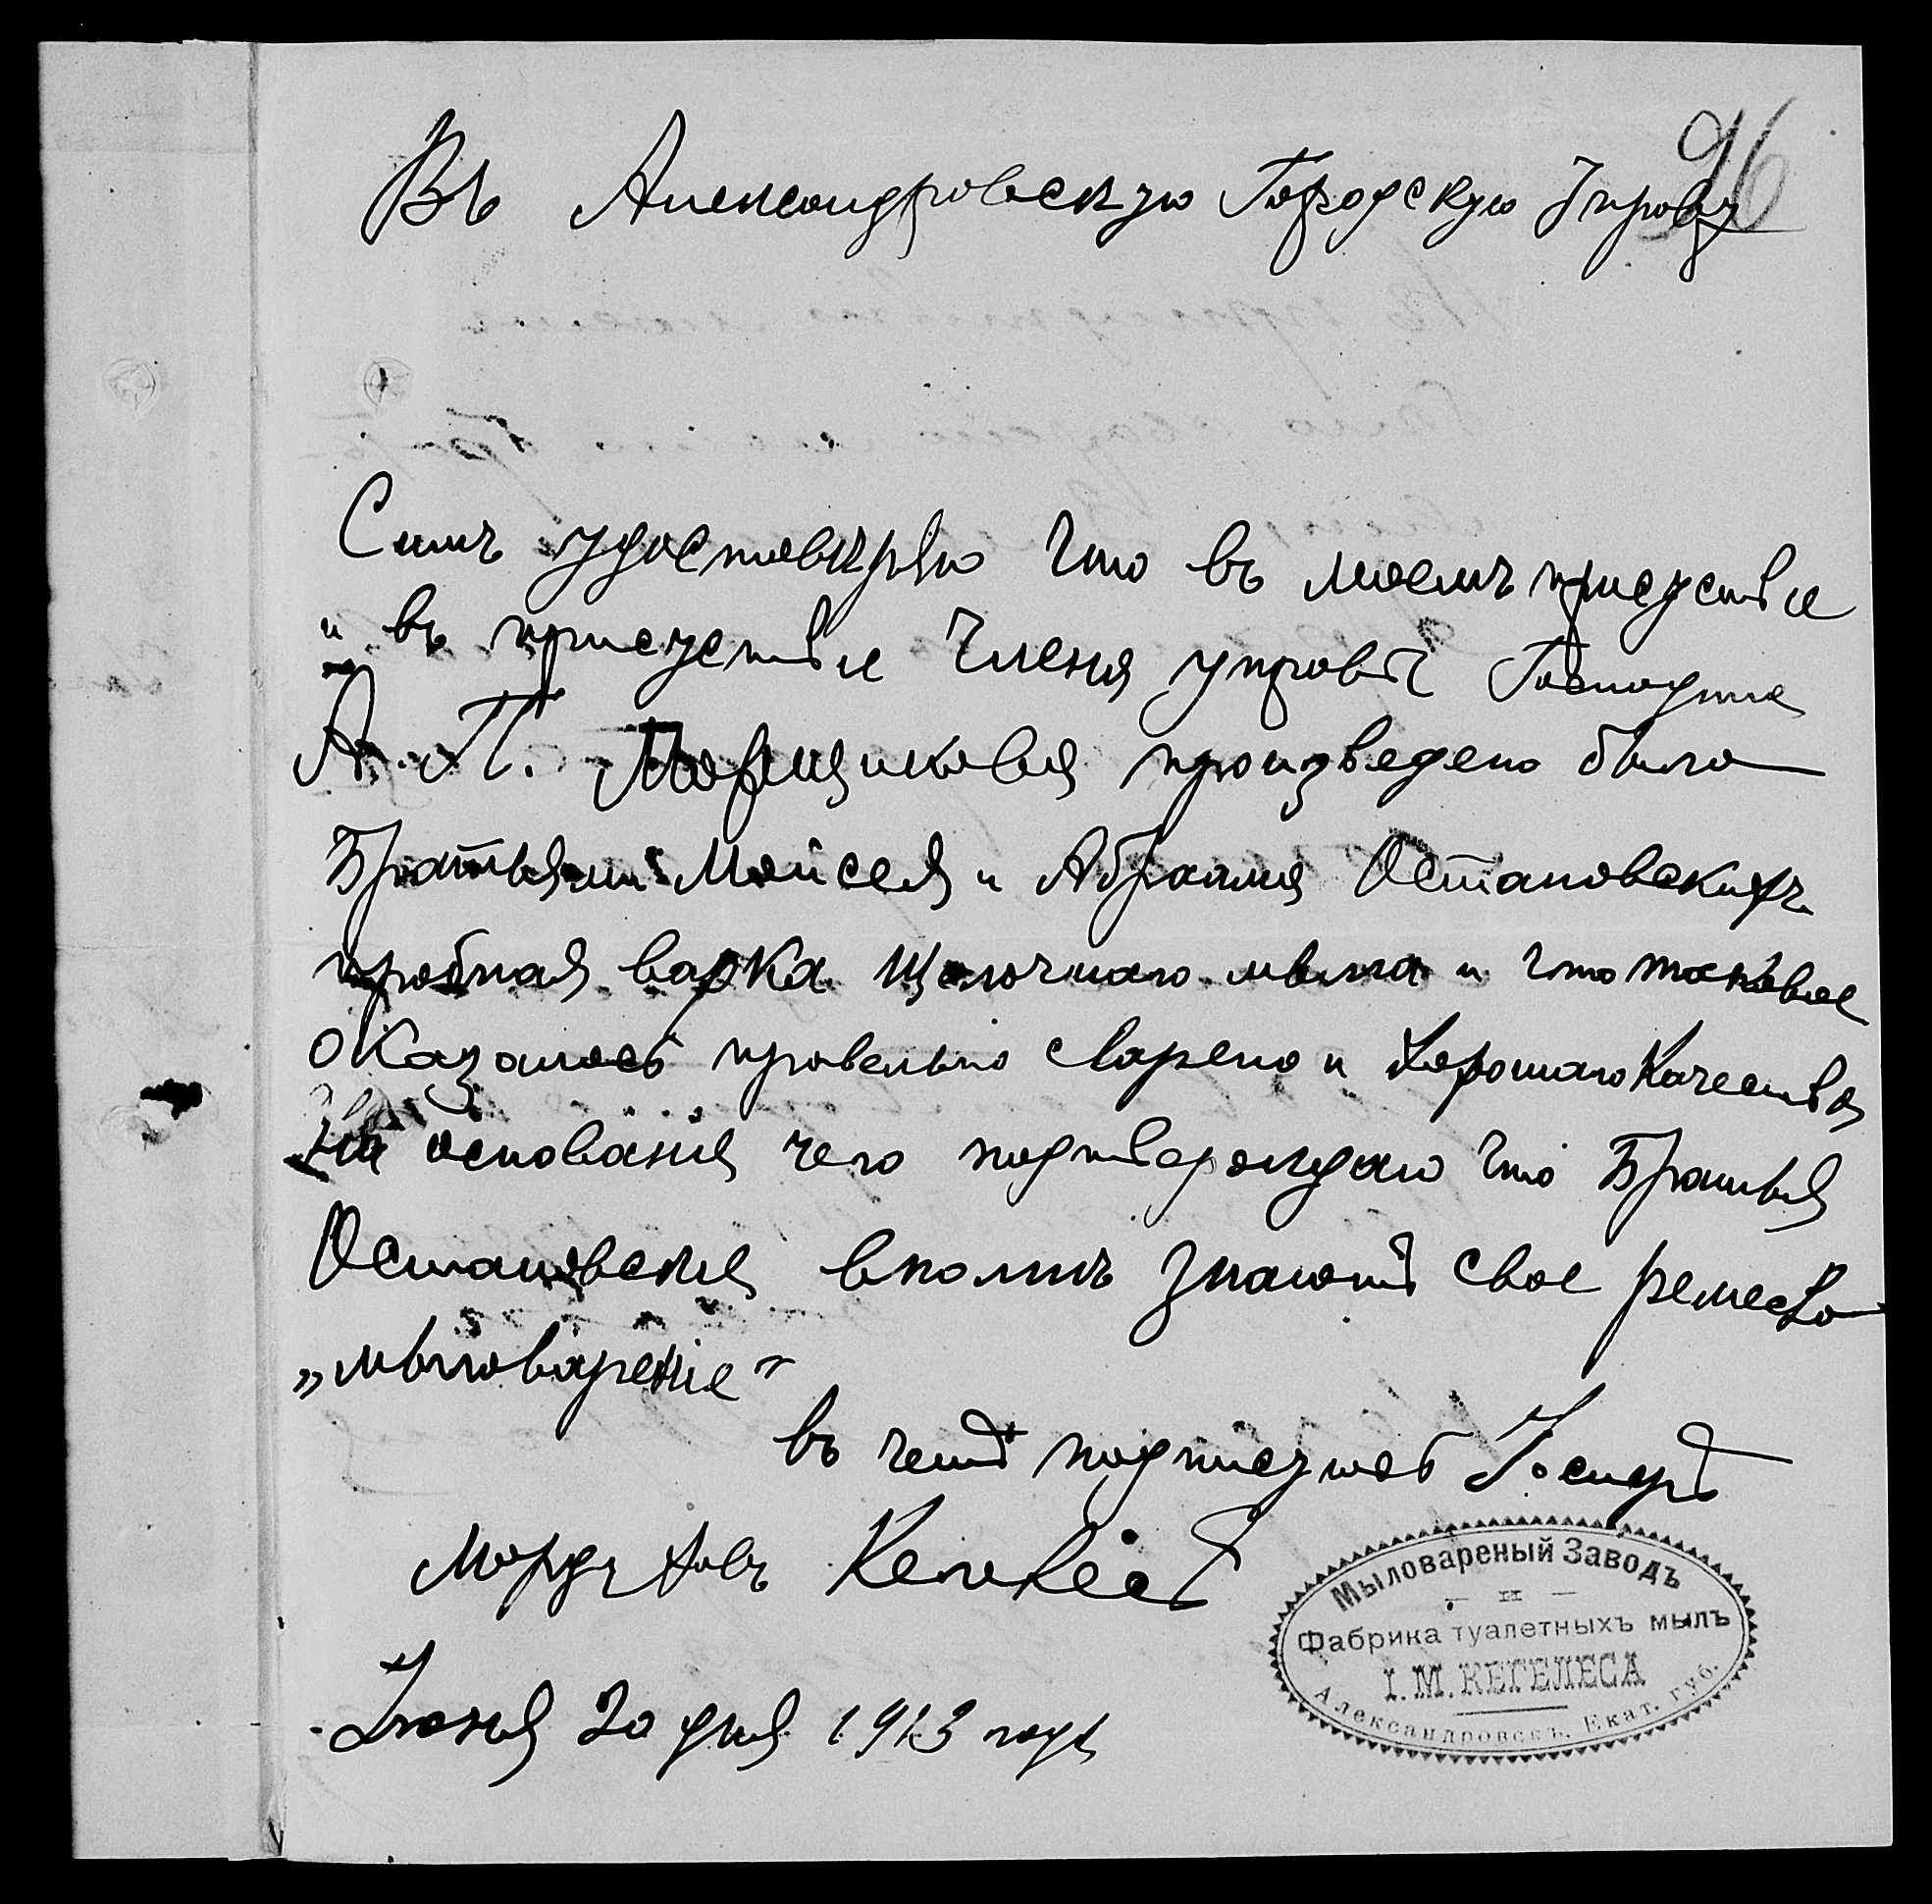 96
Въ Александровскую Городскую Управу
Симъ удостовѣряю что въ моемъ присуствіе
и въ присуствіе Члена управы Господина
А. П. Морщикова произведено было
Братьями Мойсея и Абрама Остановскихъ
пробная варка щелочнаго мыла и что таковое
оказалось правельно сварено и хорошаго качества
На основанія чего подтверждаю что Братья
Остановскія вполнѣ знаютъ свое ремесло
„мыловареніе"
въ чемъ подписуюсь Іосифъ
Кегелесъ
Іюня 20 дня 1913 года
Мыловареный Заводъ
— и —
Фабрика туалетныхъ мылъ
І. М. КЕГЕЛЕСА
Александровскъ, Екат. губ.